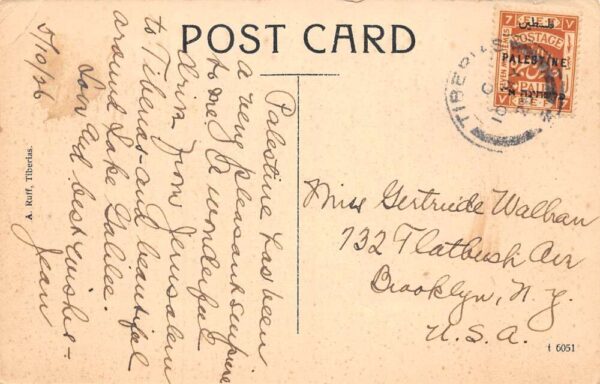 POST CARD
5/10/26
Palestine has been
a very pleasant surprise
to me. A wonderful
drive from Jerusalem
to Tiberias and beautiful
around Lake Galilee.
Love and best wishes –
Jean
A. Ruff, Tiberias.
Miss Gertrude
732 Flatbush Ave
Brooklyn, N.Y.
U.S.A.
فلسطين
POSTAGE
PALESTINE
PAID
TIBERIAS
† 6051